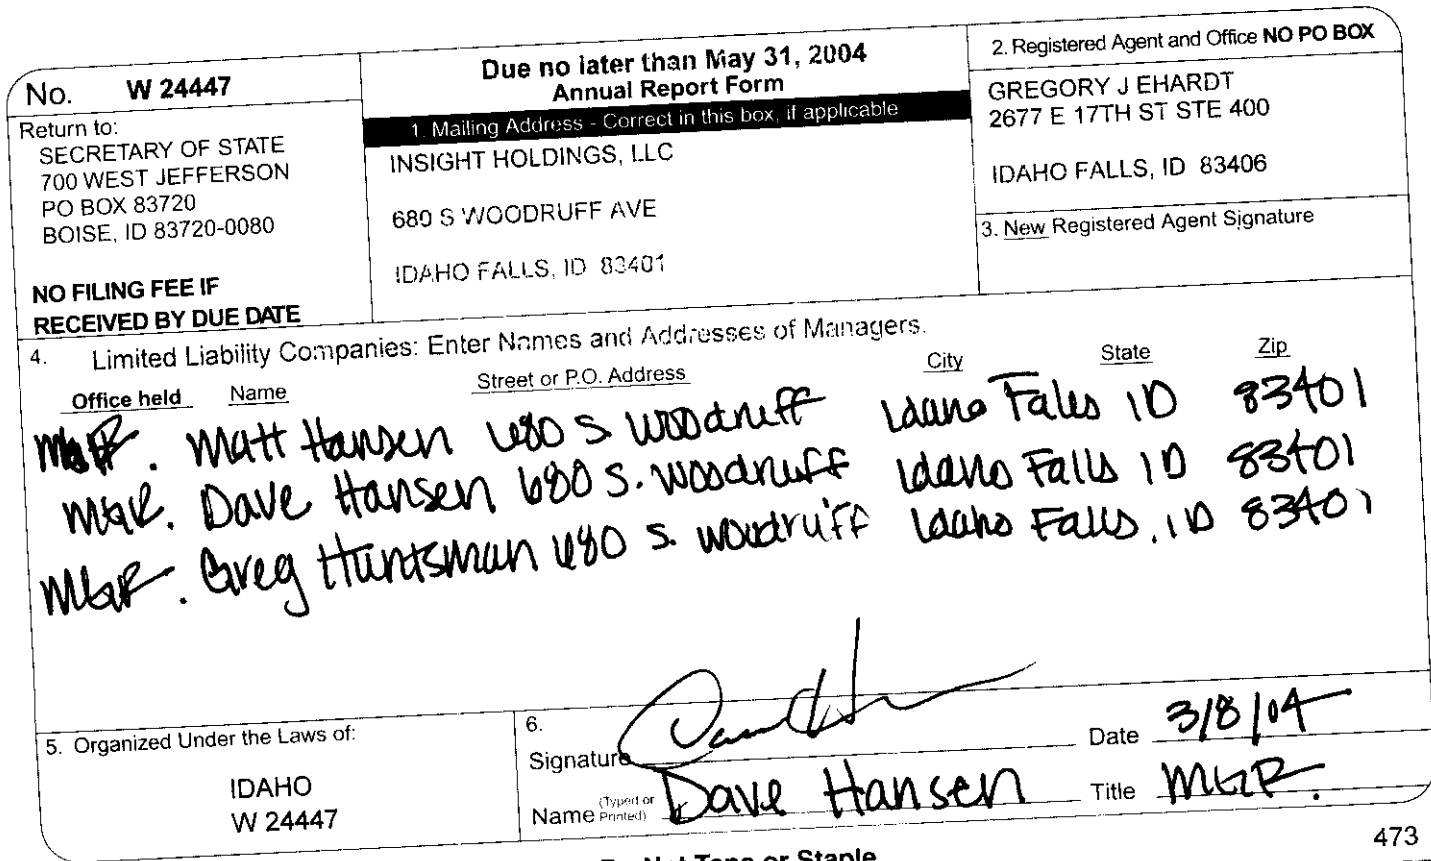 No. W 24447
Return to:
SECRETARY OF STATE
700 WEST JEFFERSON
PO BOX 83720
BOISE, ID 83720-0080
NO FILING FEE IF
RECEIVED BY DUE DATE
Due no later than May 31, 2004
Annual Report Form
1. Mailing Address - Correct in this box, if applicable
INSIGHT HOLDINGS, LLC
680 S WOODRUFF AVE
IDAHO FALLS, ID 83401
2. Registered Agent and Office NO PO BOX
GREGORY J EHARDT
2677 E 17TH ST STE 400
IDAHO FALLS, ID 83406
3. New Registered Agent Signature
4. Limited Liability Companies: Enter Names and Addresses of Managers.
Office held Name Street or P.O. Address City State Zip
MGR. Matt Hansen 680 S Woodruff Idaho Falls ID 83401
MGR. Dave Hansen 680 S. Woodruff Idaho Falls ID 83401
MGR. Greg Huntsman 680 S. Woodruff Idaho Falls, ID 83401
5. Organized Under the Laws of:
IDAHO
W 24447
6.
Signature
Date 3/8/04
Name (Typed or Printed) Dave Hansen Title MGR.
473
Do Not Tape or Staple